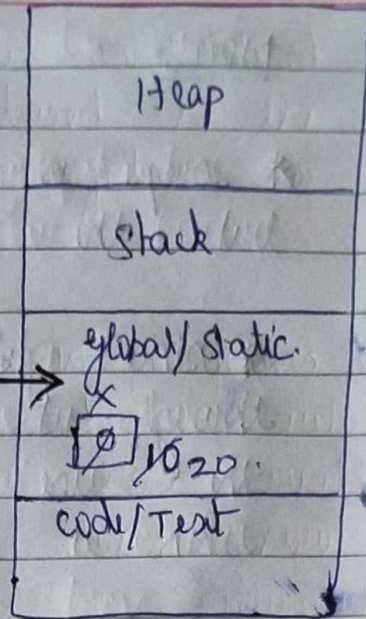 Heap
Stack
global/static.
x
0 10 20.
code/Text